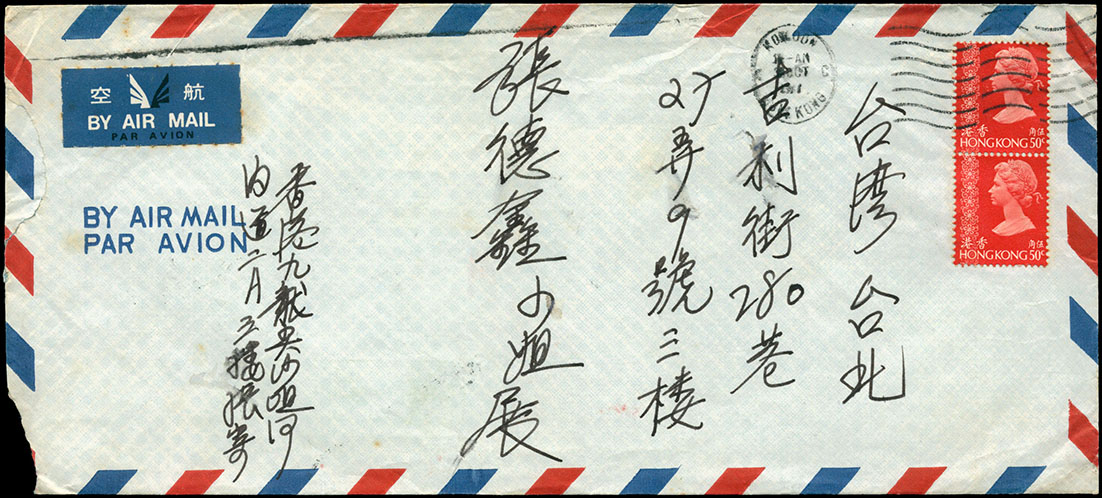 空 航
BY AIR MAIL
PAR AVION
BY AIR MAIL
PAR AVION
KOWLOON
C
KONG
香港
伍角
HONG KONG 50c
香港
伍角
HONG KONG 50c
台湾 台北
吉利街280巷
27弄9號三楼
張德鑫小姐展
香港九龍尖沙咀河
內道 三楼張寄